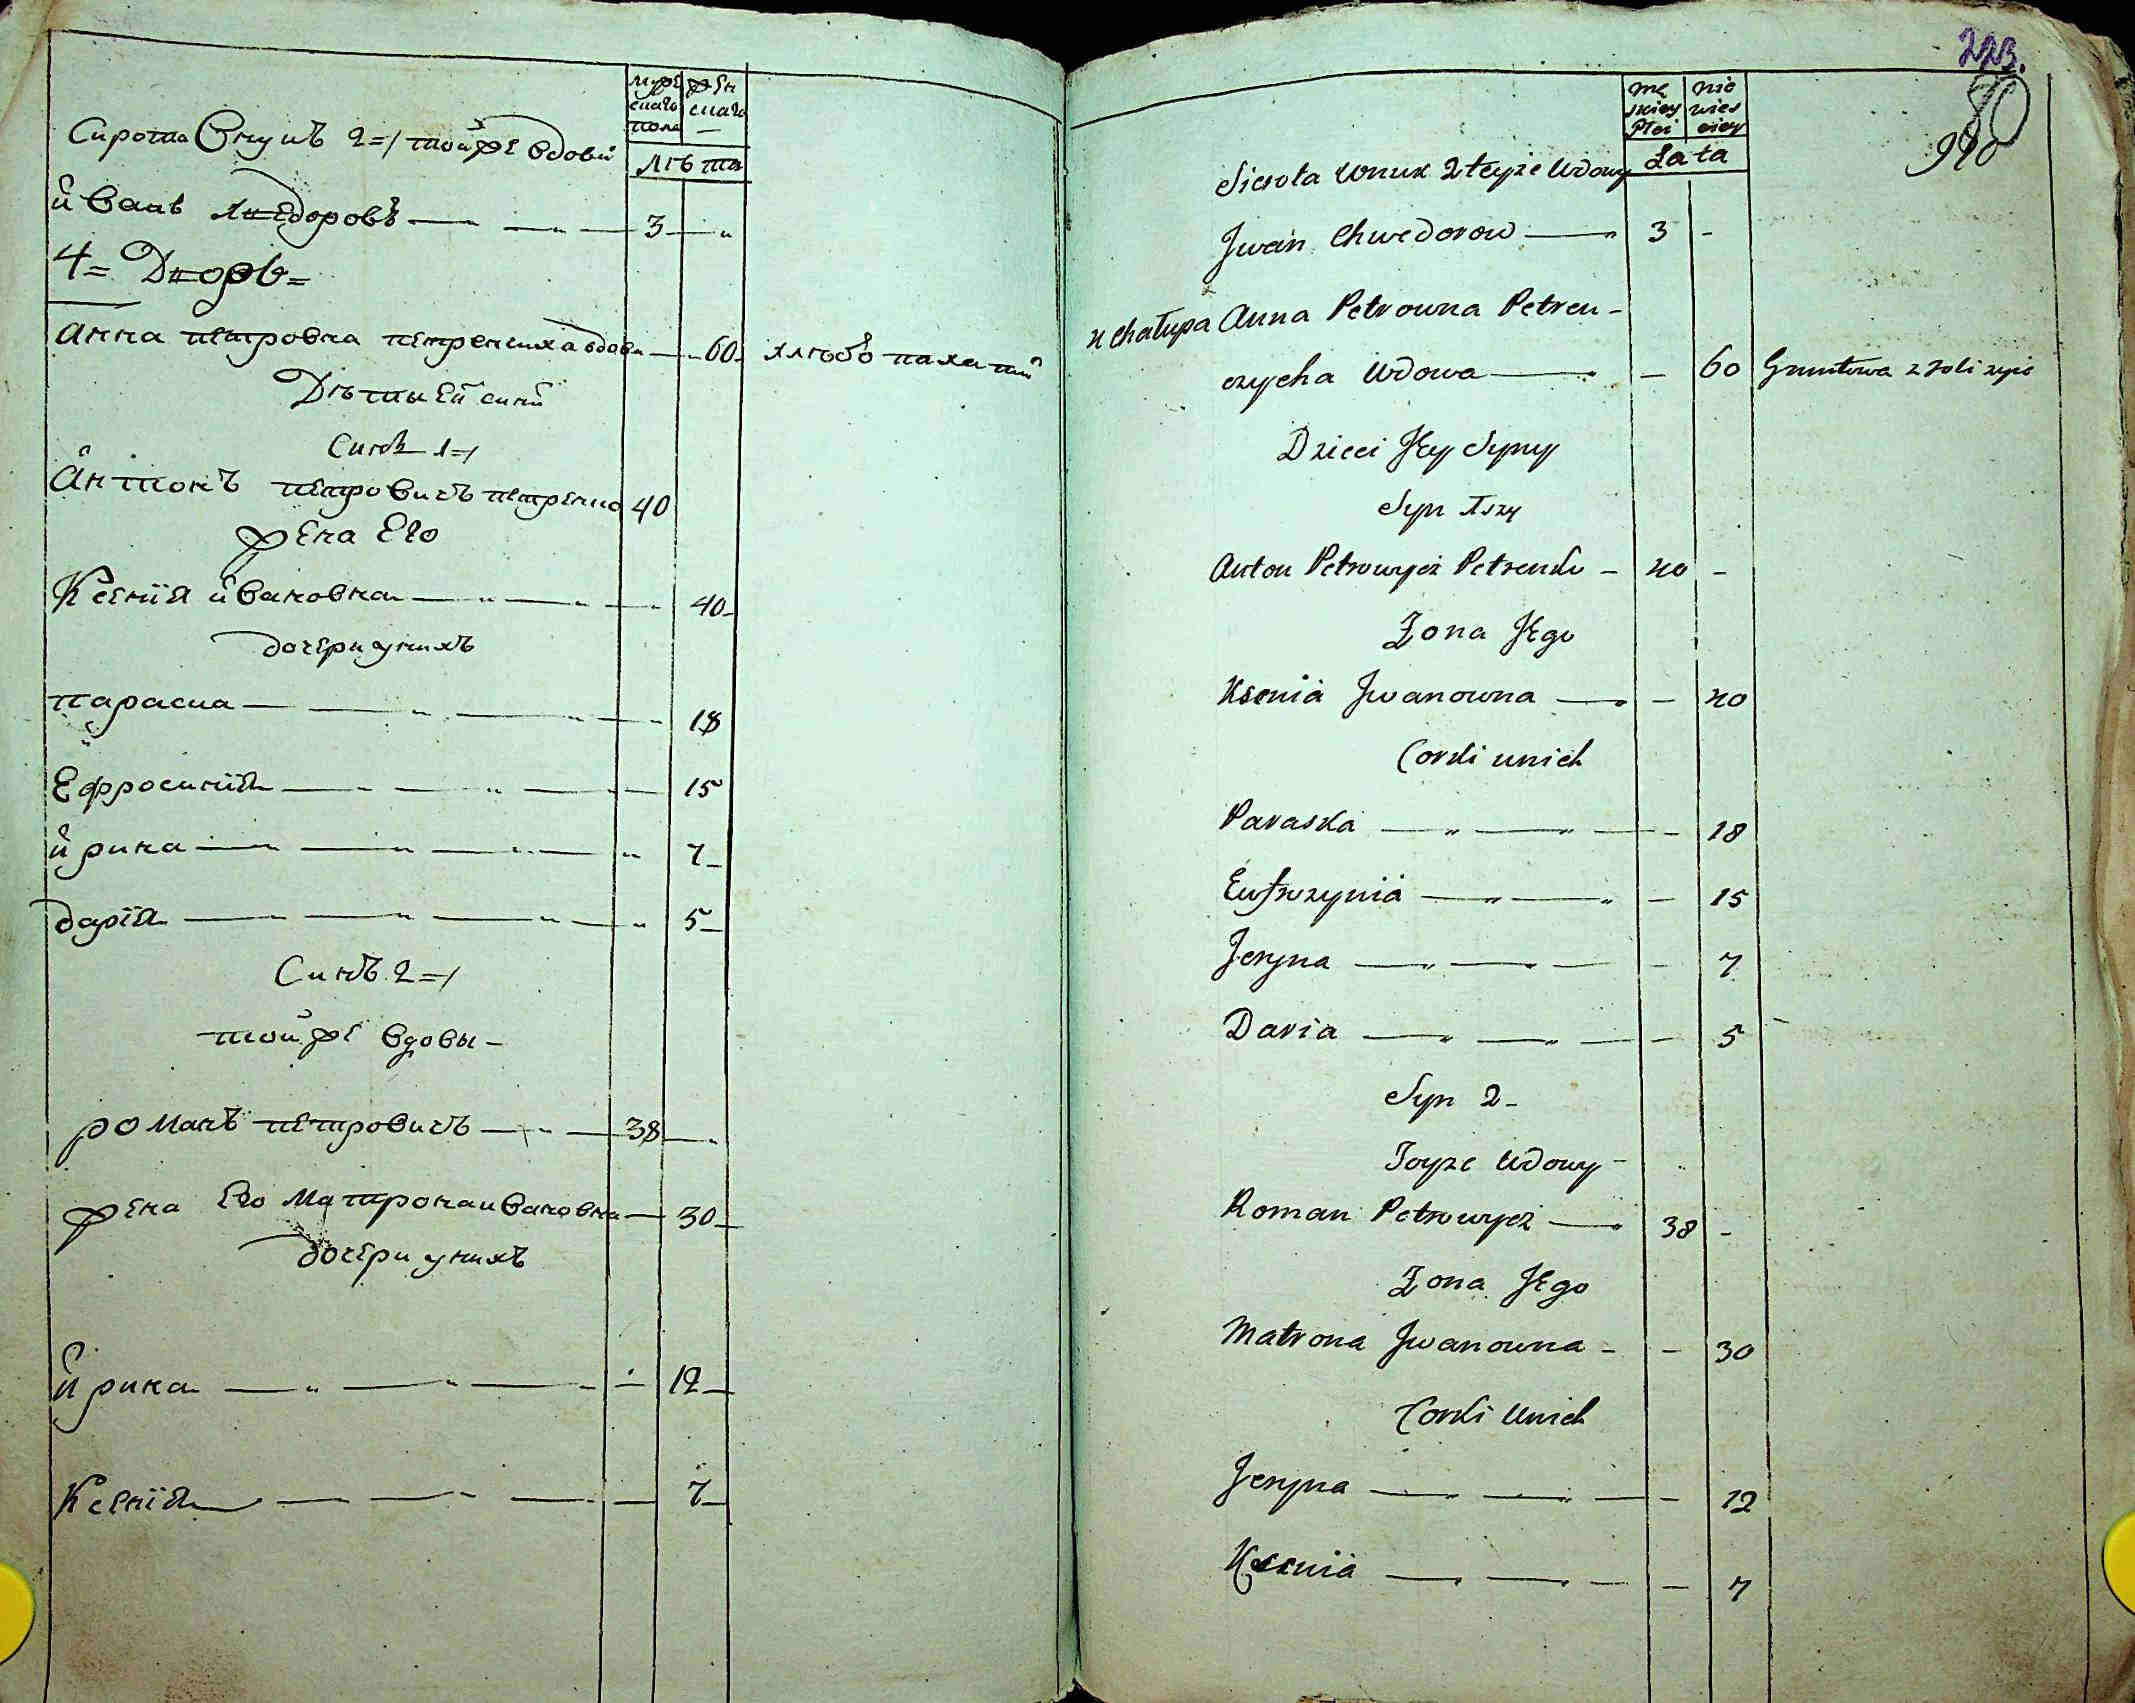 мужескаго пола
женскаго
лѣта
Сирота Внукъ 2=й тойже вдови
Иванъ Хведоровъ — 3 —
4= Дворъ=
Анна петровна петренчиха вдова — 60 хлѣбопахатній
Дѣти Ей сини
Синъ 1=й
Антонъ петровичъ петренко 40
жена Его
Ксенїя Ивановна — 40
дочери унихъ
параска — 18
Ефросинїя — 15
Ирина — 7
дарїя — 5
Синъ 2=й
тойже вдовы
романъ петровичъ — 38 —
жена Его Матрона Ивановна — 30
дочери унихъ
Ирина — 12
Ксенїя — 7
223.
80
990
męskiey Płci
niewiesciey
Lata
Sierota Wnuk 2 teyże Wdowy
Jwan Chwedorow — 3 -
4 chałupa Anna Petrowna Petren-
czycha Wdowa — 60 Gruntowa z roli żyie
Dzieci Jey Syny
Syn 1szy
Anton Petrowycz Petrenko - 40 -
Zona Jego
Ksenia Jwanowna — 40
Corki unich
Paraska — 18
Eufrozynia — 15
Jeryna — 7
Daria — 5
Syn 2-
Toyże Wdowy
Roman Petrowycz — 38 -
Zona Jego
Matrona Jwanowna - - 30
Corki Unich
Jeryna — 12
Ksenia — 7